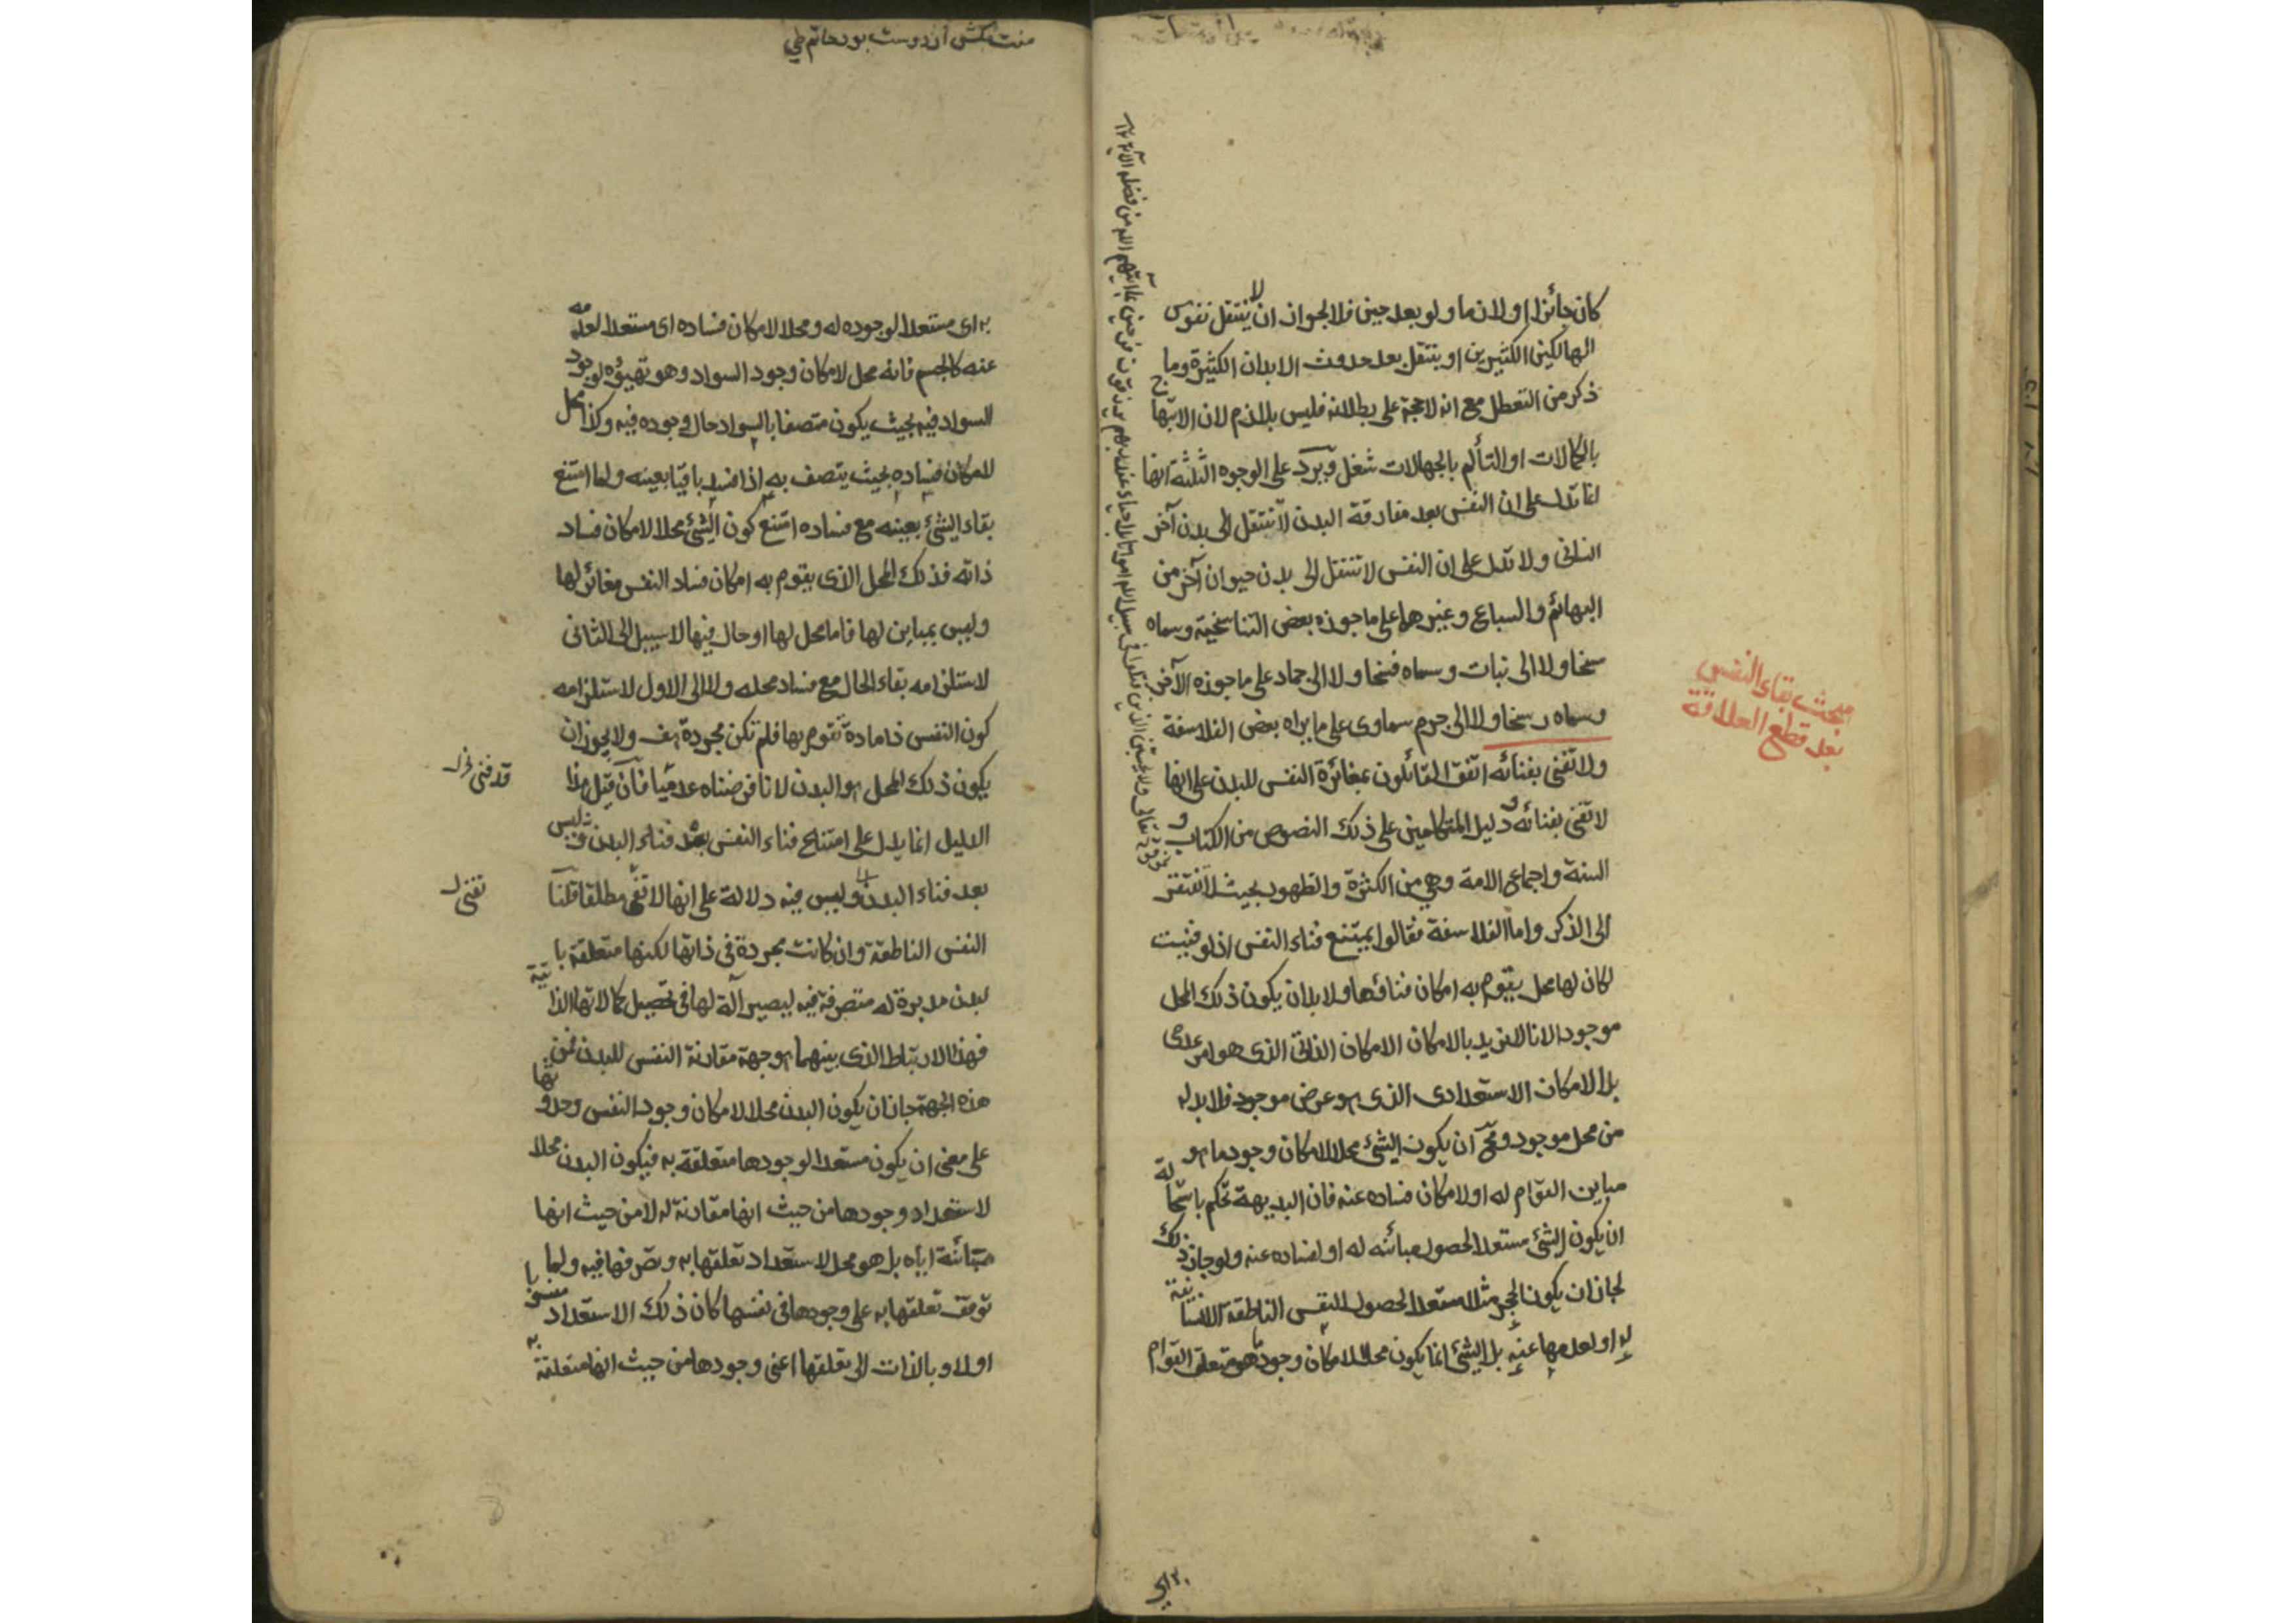 كان جائزا او لازما ولو بعد حين فلا لجواز ان لا ينتقل نفوس
الهالكين الكثيرين او ينتقل بعد حدوث الابدان الكثيرة وما
ذكر من التعطل مع انه لا حجة على بطلانه فليس بلازم لان الابتهاج
بالكمالات او التألم بالجهالات شغل ويرد على الوجوه الثلثة انها
انما تدل على ان النفس بعد مفارقة البدن لا تنتقل الى بدن آخر
انسانى ولا تدل على ان النفس لا تنتقل الى بدن حيوان آخر من
البهائم والسباع وغيرهما على ما جوزه بعض التناسخية وسماه
مسخا ولا الى نبات وسماه فسخا ولا الى جماد على ما جوزه الآخر
وسماه رسخا ولا الى جرم سماوى على ما يراه بعض الفلاسفة
ولا تفنى بفنائه اتفق القائلون بمغائرة النفس للبدن على انها
لا تفنى بفنائه ودليل المتكلمين على ذلك النصوص من الكتاب و
السنة واجماع الامة وهى من الكثرة والظهور بحيث لا تفتقر
الى الذكر واما الفلاسفة فقالوا يمتنع فناء النفس اذ لو فنيت
لكان لها محل يقوم به امكان فنائها ولا بد ان يكون ذلك المحل
موجودا لانا لا نريد بالامكان الامكان الذاتى الذى هو امر عدمى
بل الامكان الاستعدادى الذى هو عرض موجود فلا بد له
من محل موجود ومح ان يكون الشئ محلا لامكان وجود ما هو
مباين القوام له او لامكان فساده عنه فان البديهة تحكم باستحالة
ان يكون الشئ مستعدا لحصول مبائنه له او لفساده عنه ولو جاز ذلك
لجاز ان يكون الحجر مثلا مستعدا لحصول النفس الناطقة الانسانية
له او لعدمها عنه بل الشئ انما يكون محلا لامكان وجود ما هو متعلق القوام
مبحث بقاء النفس
بعد قطع العلاقة
منت مكش ار دوست بود حاتم طى
به اى مستعدا لوجوده له ومحلا لامكان فساده اى مستعدا لعدمه
عنه كالجسم فانه محل لامكان وجود السواد وهو تهيؤه لوجود
السواد فيه بحيث يكون متصفا بالسواد حال وجوده فيه وكذا محل
لامكان فساده بحيث يتصف به اذا فسد باقيا بعينه ولما امتنع
بقاء الشئ بعينه مع فساده امتنع كون الشئ محلا لامكان فساد
ذاته فذلك المحل الذى يقوم به امكان فساد النفس مغائر لها
وليس بمباين لها فاما محل لها او حال فيها لا سبيل الى الثانى
لاستلزامه بقاء الحال مع فساد محله ولا الى الاول لاستلزامه
كون النفس ذا مادة تقوم بها فلم تكن مجردة هف ولا يجوز ان
يكون ذلك المحل هو البدن لانا فرضناه عدميا فان قيل هذا
الدليل انما يدل على امتناع فناء النفس بعد فناء البدن
بعد فناء البدن وليس فيه دلالة على انها لا تفنى مطلقا قلنا
النفس الناطقة وان كانت مجردة فى ذاتها لكنها متعلقة با
لبدن مدبرة له متصرفة فيه ليصير آلة لها فى تحصيل كمالاتها الذاتية
فهذا الارتباط الذى بينهما هو جهة مقارنة النفس للبدن فمن
هذه الجهة جاز ان يكون البدن محلا لامكان وجود النفس وحدوثها
على معنى ان يكون مستعدا لوجودها متعلقة به فيكون البدن محلا
لاستعداد وجودها من حيث انها مقارنة له لا من حيث انها
مبائنة اياه بل هو محل لاستعداد تعلقها به وتصرفها فيه ولما
توقف تعلقها به على وجودها فى نفسها كان ذلك الاستعداد منسوبا
اولا وبالذات الى تعلقها اعنى وجودها من حيث انها متعلقة به